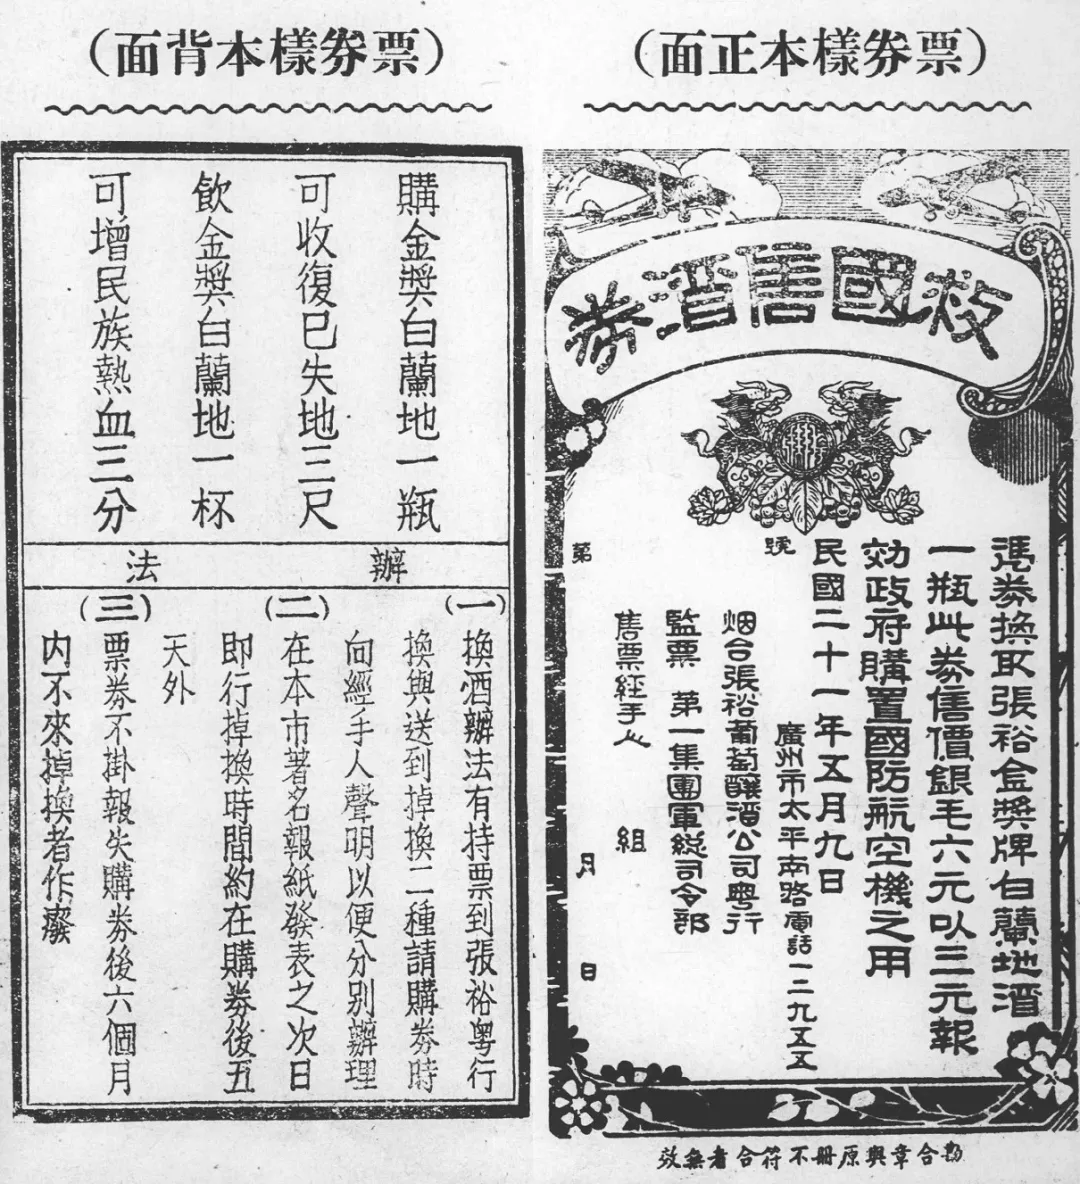 （票券樣本正面）
救國售酒券
憑券換取張裕金獎牌白蘭地酒
一瓶此券售價銀毛六元以三元報
効政府購置國防航空機之用
民國二十一年五月九日
號
廣州市太平南路電話一二九五五
烟台張裕葡萄釀酒公司粵行
監票 第一集團軍総司令部
售票經手人 組
第 月 日
勘合章與原冊不符合者無效
（票券樣本背面）
購金獎白蘭地一瓶
可收復已失地三尺
飲金獎白蘭地一杯
可增民族熱血三分
辦法
(一)換酒辦法有持票到張裕粵行
換與送到掉換二種請購券時
向經手人聲明以便分別辦理
(二)在本市著名報紙發表之次日
即行掉換時間約在購券後五
天外
(三)票券不掛報失購券後六個月
內不來掉換者作廢